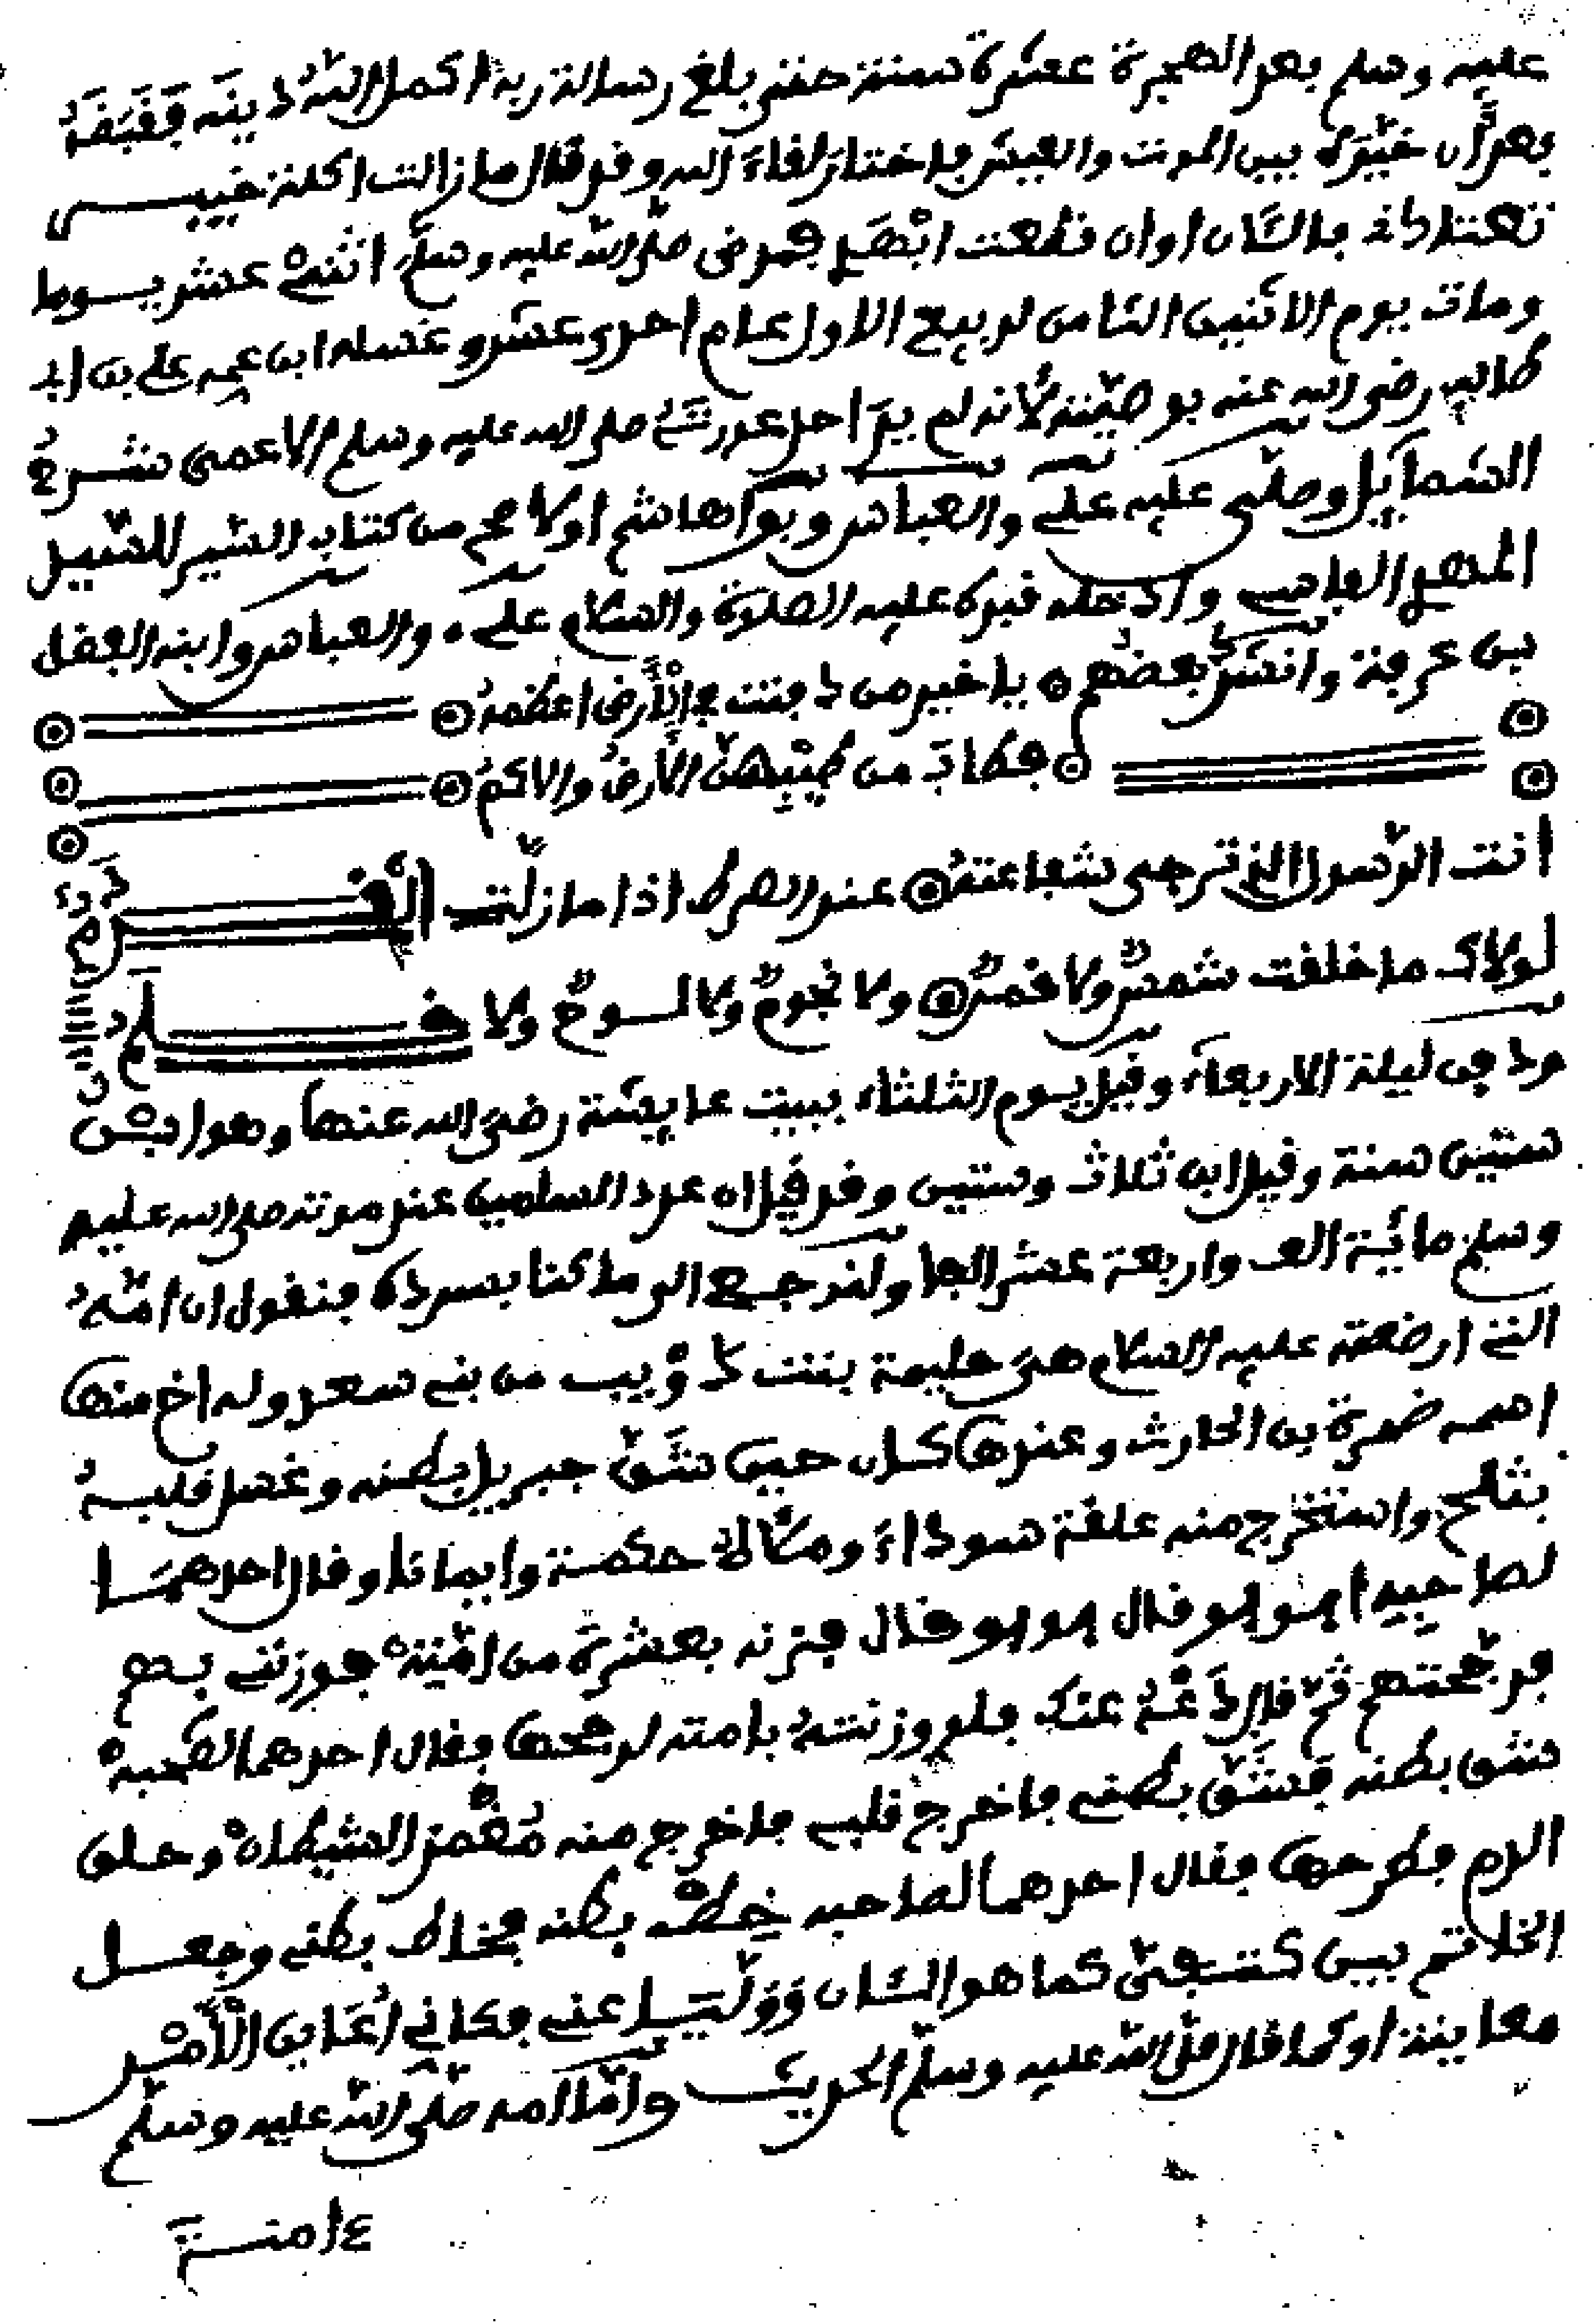 عليه وسلم بعد الهجرة عشرة سنة حتى بلغ رسالة ربه اكمل الله دينه فقبضه
بعد أن خيّره بين الموت والعيش فاختار لقاء الله وقد قال ما زالت اكلة خيبر
تعتادني فالئان اوان قطعت ابهر فمرض صلى الله عليه وسلم اثني عشر يوما
ومات يوم الاثنين الثامن لربيع الاول عام احدى وعشر وغسله ابن عمه علي بن ابي
طالب رضي الله عنه بوصيته لأنه لم ير احد عورته صلى الله عليه وسلم الا عمى شرح
الشمايل وصلى عليه علي والعباس وبنوا هاشم اولا صح من كتاب السير للشيل
المهد الفاسي وادخله قبره عليه الصلاة والسلام علي والعباس وابنه الفضل
بن عرفة وانشد بعضهم يا خير من دفنت في الأرض اعظمه
فطاب من طيبهن الأرض والاكم
انت الرسول الذي ترجى شفاعته عند الصراط اذا ما زلت القدم
لولاك ما خلقت شمس ولا قمر ولا نجوم ولا لوح ولا قلم
ودفن ليلة الاربعاء وقيل يوم الثلثاء ببيت عايشة رضي الله عنها وهو ابن
ستين سنة وقيل ابن ثلاث وستين وقد قيل ان عدد المسلمين عند موته صلى الله عليه
وسلم مائية الف واربعة عشر الفا ولنرجع الى ما كنا بسرده فنقول ان امه
التي ارضعته عليه السلام هي حليمة بنت ذؤيب من بني سعد وله اخ منها
اسمه ضمرة بن الحارث وعندها كان حين شق جبريل بطنه وغسل قلبه
بثلج واستخرج منه علقة سوداء وملأه حكمة وايمانا وقال احدهما
لصاحبه اهو هو قال هو هو قال فزنه بعشرة من امته فوزنني بهم
فرجحتهم ثم قال دعه عنك فلو وزنته بامته لرجحها فقال احدهما لصحبه
شق بطنه فشق بطني فاخرج قلبي فاخرج منه مغمز الشيطان وعلق
الدم فطرحها فقال احدهما لصاحبه خط بطنه فخاط بطني وجعل
الخاتم بين كتفي كما هو الئان وولّيا عني فكاني اعاين الأمر
معاينة او كما قال صلى الله عليه وسلم الحديث واما امه صلى الله عليه وسلم
ءامنة